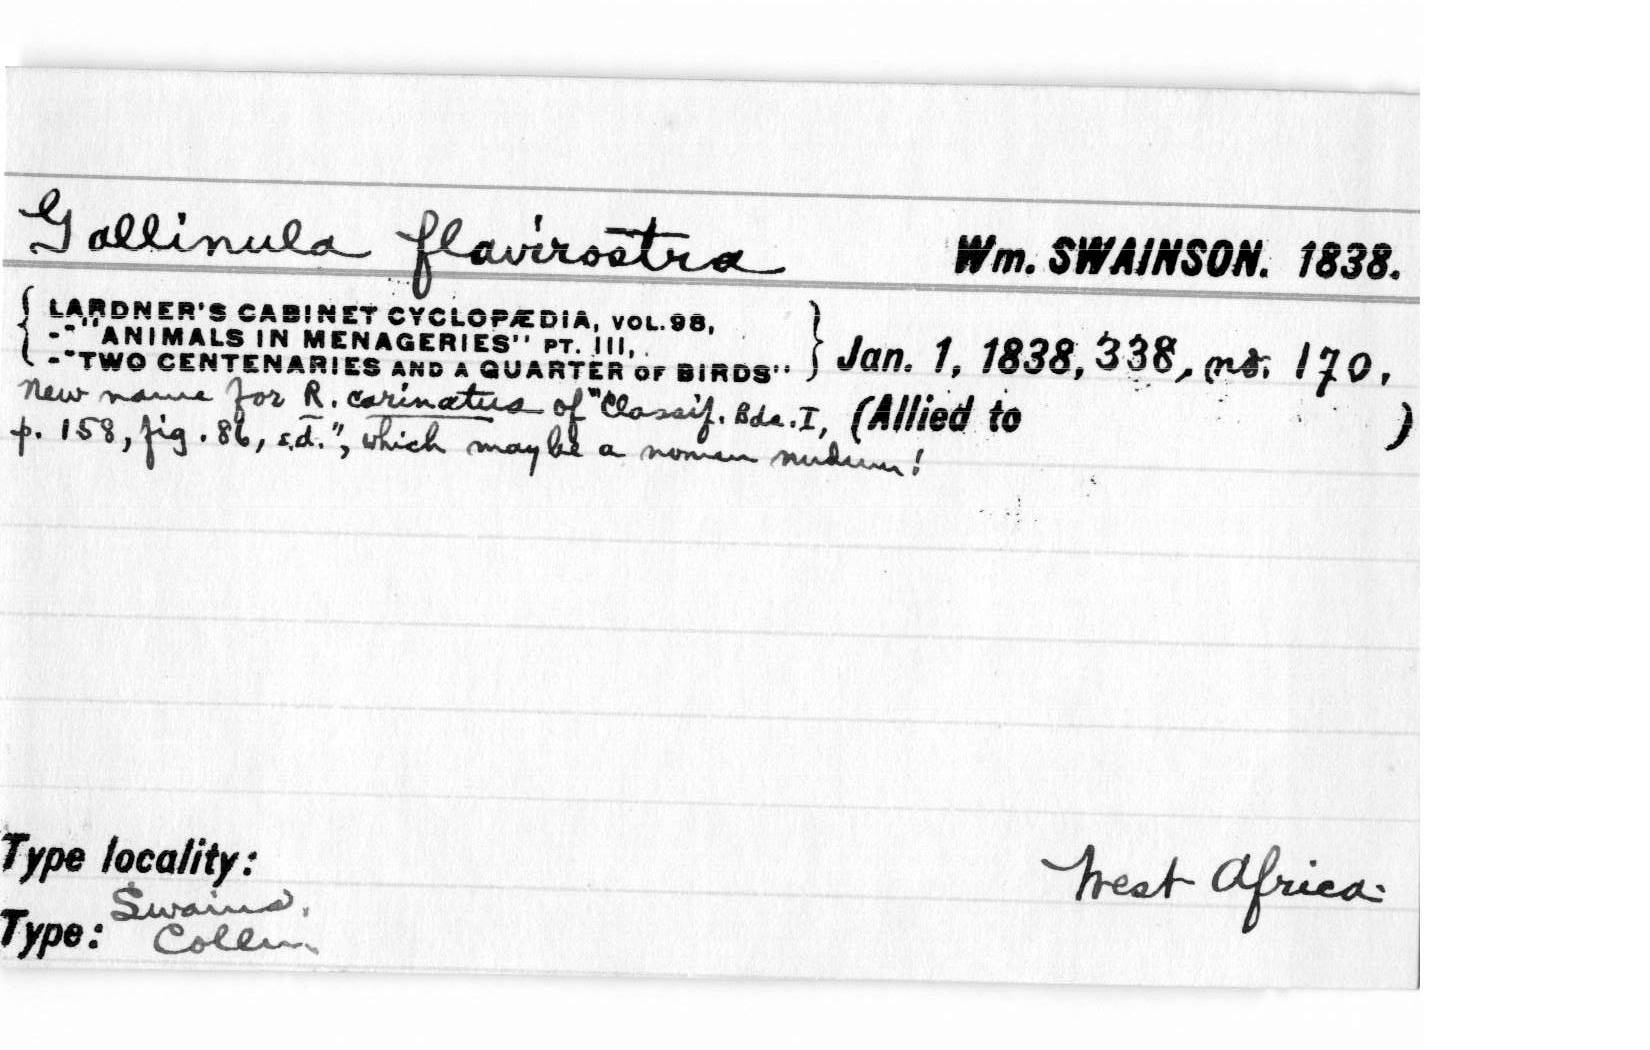 Gallinula flavirostra Wm. SWAINSON. 1838.
{ LARDNER'S CABINET CYCLOPÆDIA, VOL. 98,
-"ANIMALS IN MENAGERIES" PT. III,
-"TWO CENTENARIES AND A QUARTER OF BIRDS" } Jan. 1, 1838, 338, no. 170.
New name for R. carinatus of "Classif. Bds. I, (Allied to )
p. 158, fig. 86, s.d.", which maybe a nomen nudum!
Type locality: West Africa.
Swains.
Type: Colln